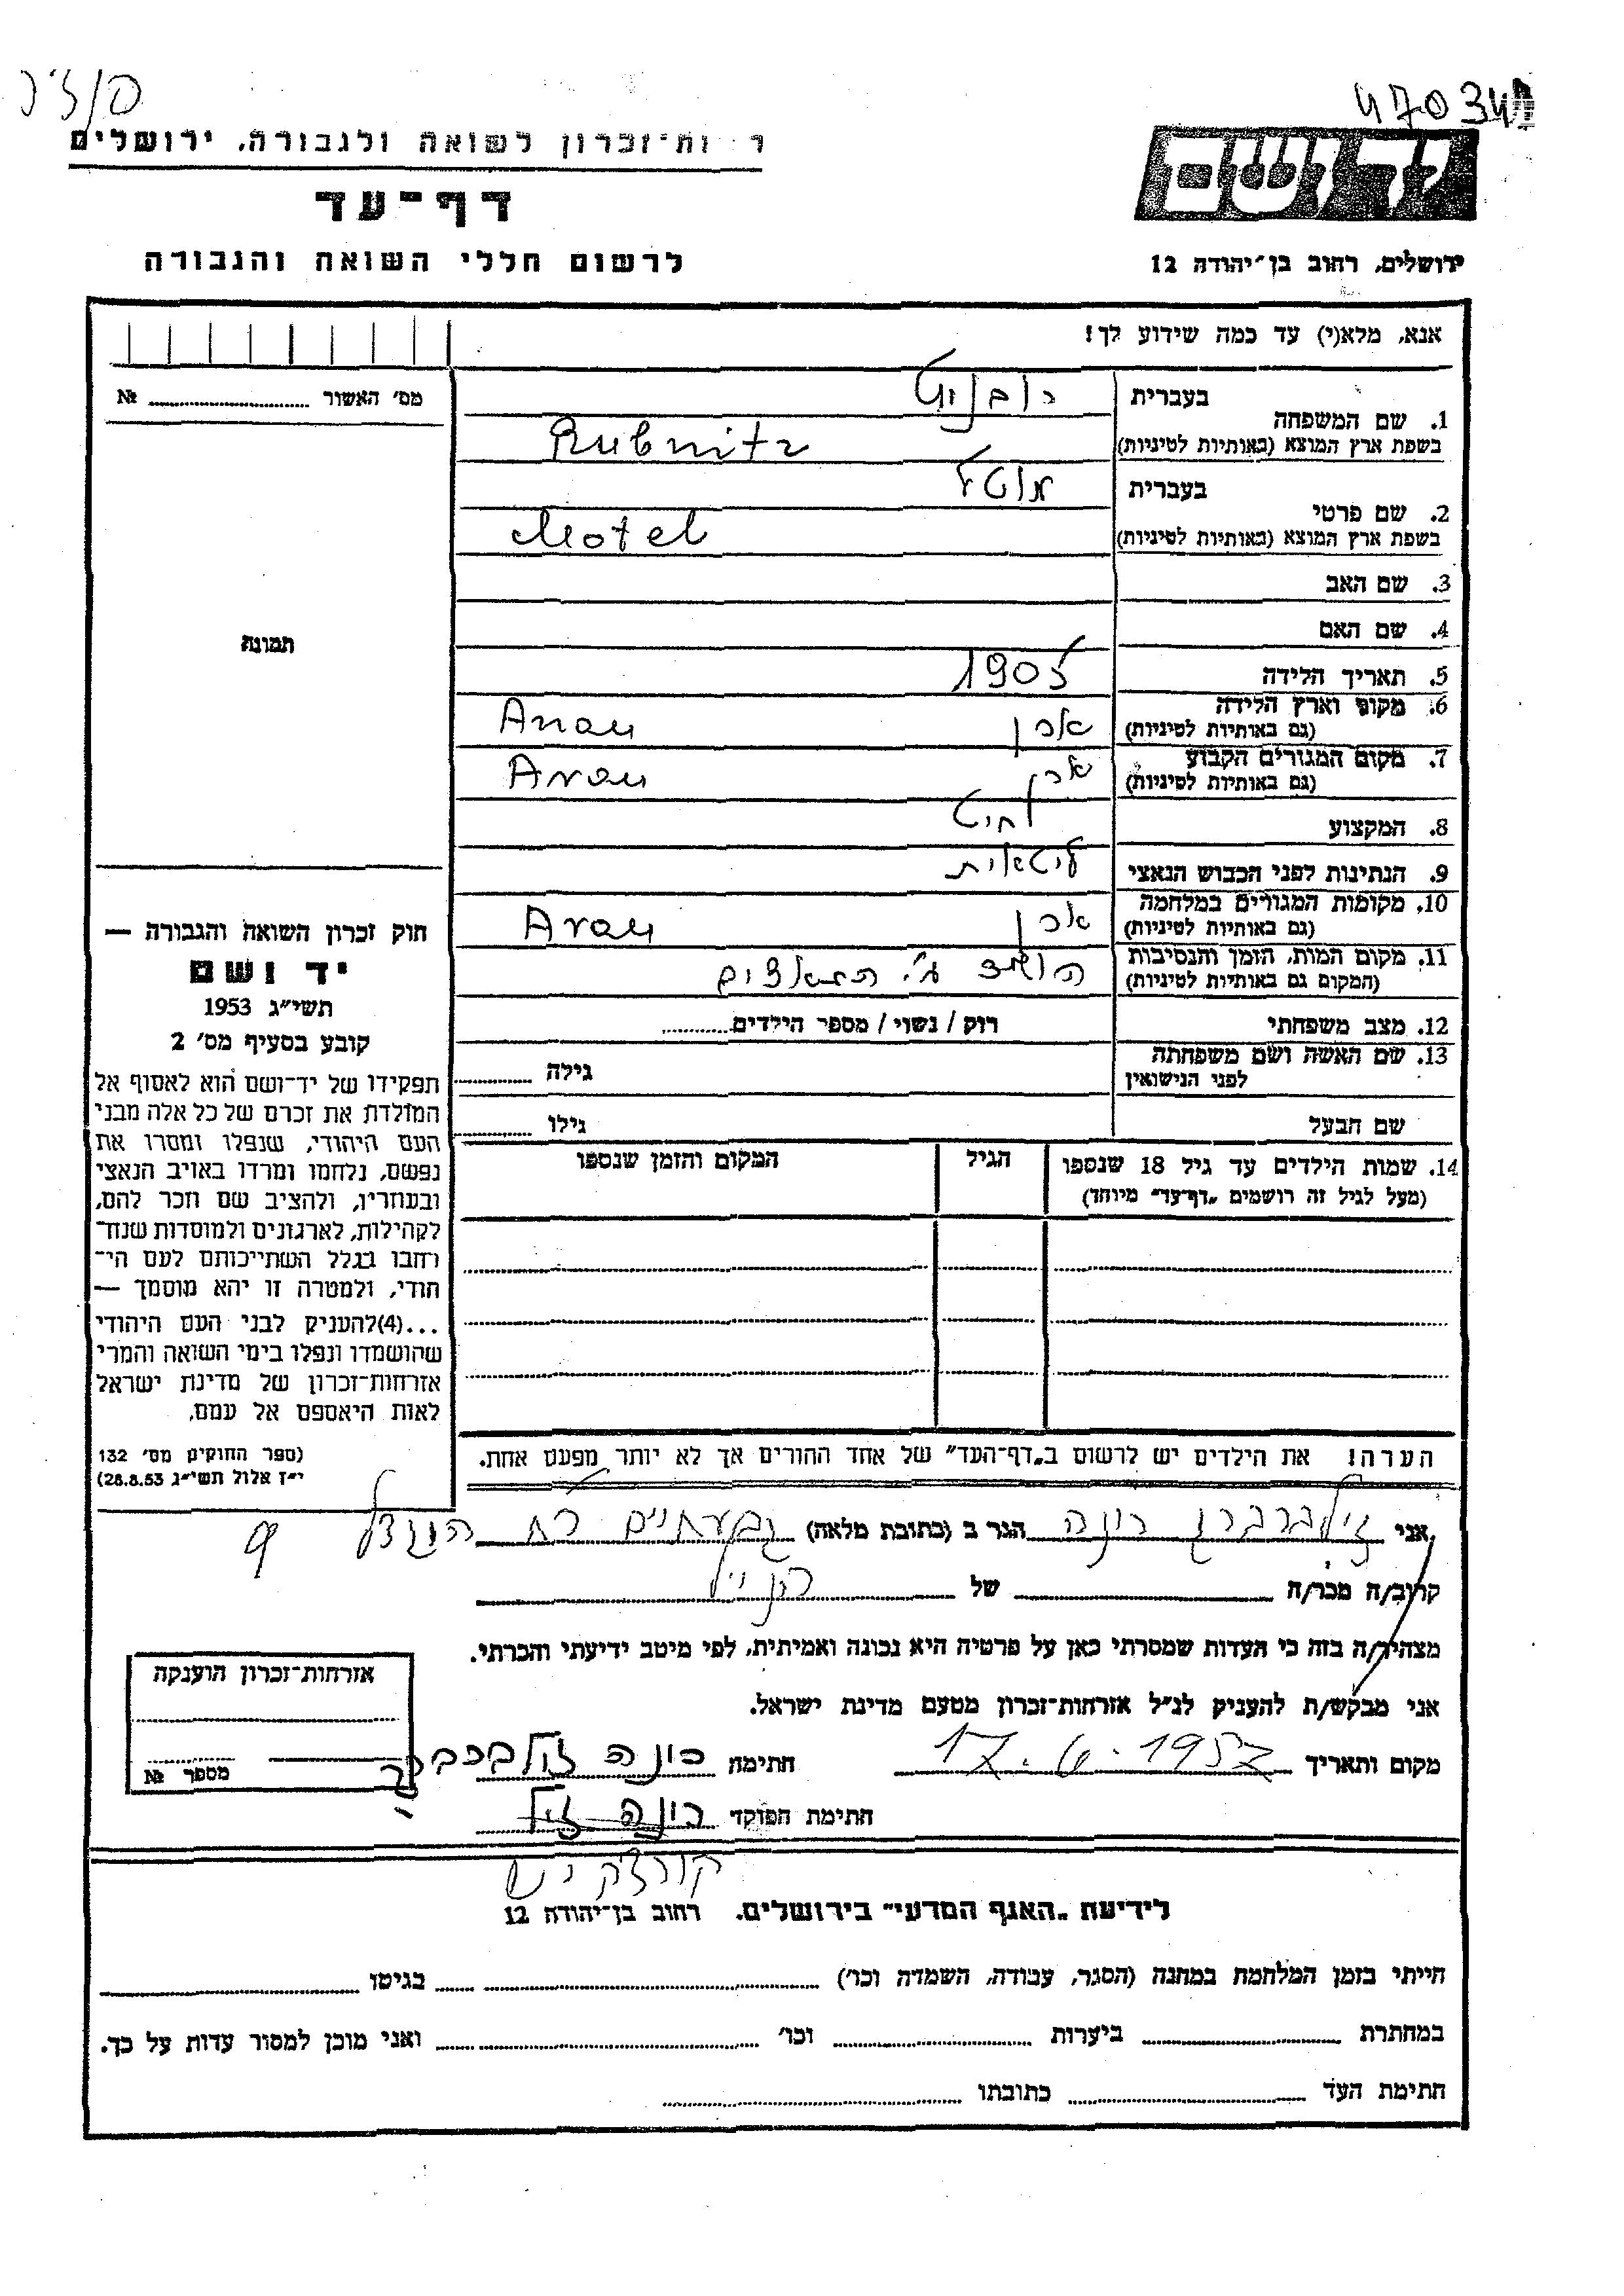 47034
ר ות־זכרון לשואה ולגבורה, ירושלים
יד ושם
דף־עד
ירושלים, רחוב בן־יהודה 12
לרשום חללי השואה והגבורה
אנא, מלא(י) עד כמה שידוע לך!
מס' האשור № ........
1. שם המשפחה בעברית
רובניץ
בשפת ארץ המוצא (באותיות לטיניות) Rubnitz
2. שם פרטי בעברית
מוטל
בשפת ארץ המוצא (באותיות לטיניות) Motel
3. שם האב
4. שם האם
תמונה
5. תאריך הלידה 1905
6. מקום וארץ הלידה
(גם באותיות לטיניות) Aran
7. מקום המגורים הקבוע
(גם באותיות לטיניות) Aran
8. המקצוע חייט
9. הנתינות לפני הכבוש הנאצי ליטאית
10. מקומות המגורים במלחמה
(גם באותיות לטיניות) Aran
11. מקום המות, הזמן והנסיבות
(המקום גם באותיות לטיניות)
12. מצב משפחתי רוק / נשוי / מספר הילדים........
13. שם האשה ושם משפחתה
לפני הנישואין גילה ........
שם הבעל גילו ........
14. שמות הילדים עד גיל 18 שנספו הגיל המקום והזמן שנספו
(מעל לגיל זה רושמים „דף־עד” מיוחד)
חוק זכרון השואה והגבורה —
יד ושם
תשי"ג 1953
קובע בסעיף מס' 2
תפקידו של יד־ושם הוא לאסוף אל
המולדת את זכרם של כל אלה מבני
העם היהודי, שנפלו ומסרו את
נפשם, נלחמו ומרדו באויב הנאצי
ובעוזריו, ולהציב שם וזכר להם,
לקהילות, לארגונים ולמוסדות שנח־
רבו בגלל השתייכותם לעם הי־
הודי, ולמטרה זו יהא מוסמך —
...(4)להעניק לבני העם היהודי
שהושמדו ונפלו בימי השואה והמרי
אזרחות־זכרון של מדינת ישראל
לאות היאספם אל עמם.
(ספר החוקים מס' 132
י"ז אלול תשי"ג 28.8.53)
הערה! את הילדים יש לרשום ב„דף־העד” של אחד ההורים אך לא יותר מפעם אחת.
אני זילברברג רונה הגר ב (כתובת מלאה) גבעתיים רח 9
קרוב/ה מכר/ה ........ של ........
מצהיר/ה בזה כי העדות שמסרתי כאן על פרטיה היא נכונה ואמיתית, לפי מיטב ידיעתי והכרתי.
אני מבקש/ת להעניק לנ"ל אזרחות־זכרון מטעם מדינת ישראל.
אזרחות־זכרון הוענקה
מספר №
מקום ותאריך 17.6.1957 חתימה רונה זילברברג
חתימת הפוקד רונה זיל
לידיעת „האגף המדעי” בירושלים, רחוב בן־יהודה 12
הייתי בזמן המלחמה במחנה (הסגר, עבודה, השמדה וכו') ........ בגיטו ........
במחתרת ........ ביערות ........ וכו' ........ ואני מוכן למסור עדות על כך.
חתימת העד ........ כתובתו ........